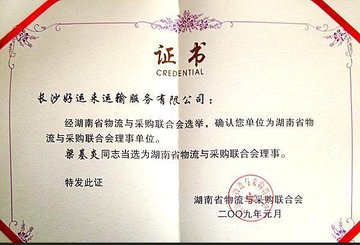 证书
CREDENTIAL
长沙好运来运输服务有限公司：
经湖南省物流与采购联合会选举，确认您单位为湖南省物
流与采购联合会理事单位。
梁基炎同志当选为湖南省物流与采购联合会理事。
特发此证
湖南省物流与采购联合会
二〇〇九年元月